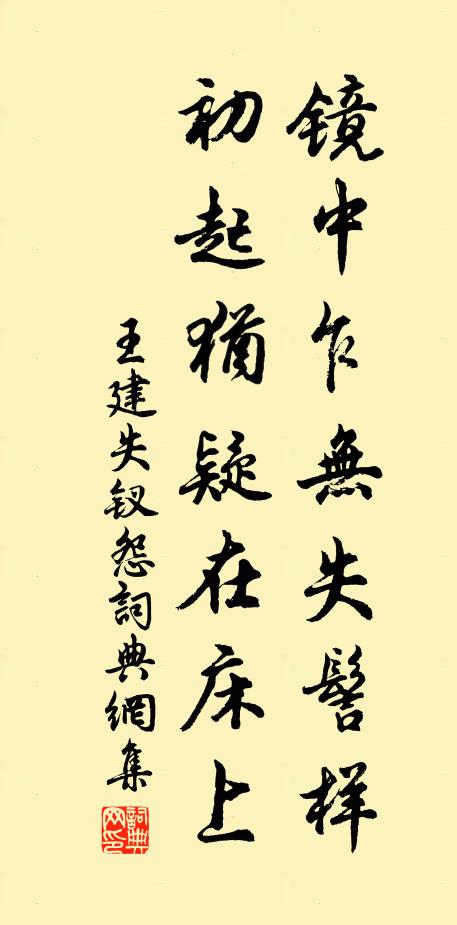 镜中乍無失髻样
初起猶疑在床上
王建失钗怨詞典網集
詞典网印